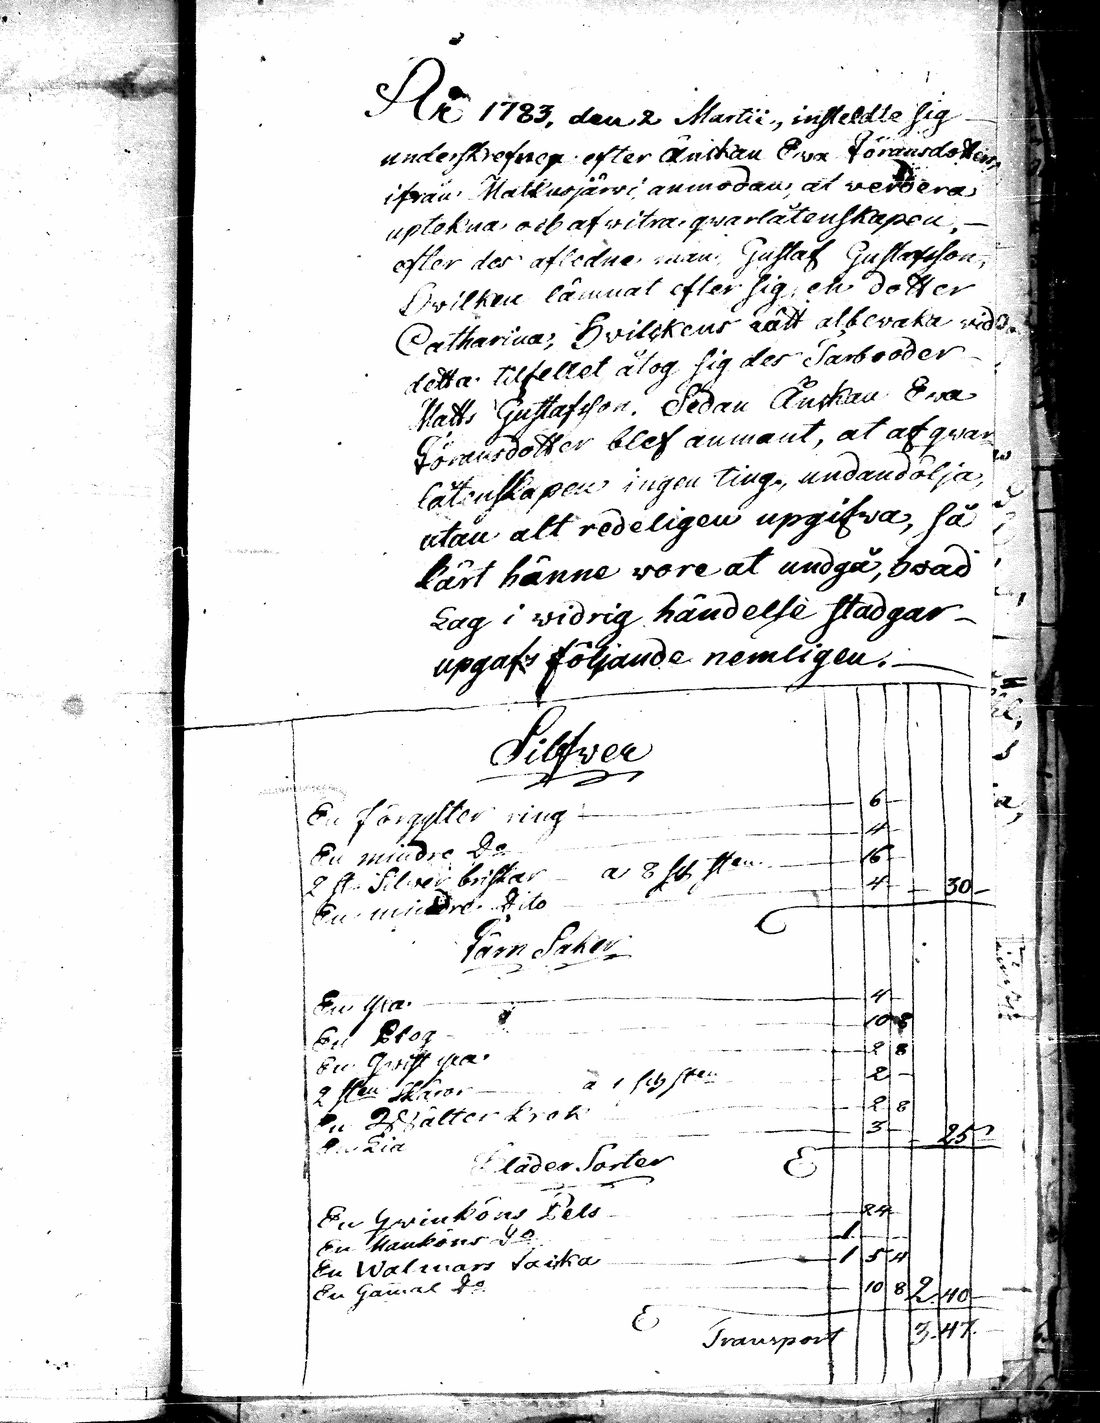 År 1783, den 2 Martii, instelte sig
underskrefnen efter Änkan Ewa Jöransdotters
ifrån Matkusjärwi anmodan, at werdera
uptekna och afwitra qwarlåtenskapen,
efter des aflednе man, Gustaf Gustafsson,
Hwilken lämnat efter sig en dotter
Catharina, Hvilkens rätt at bewaka wid
detta tilfellet åtog sig des Farbroder
Matts Gustafsson. Sedan Änkan Ewa
Jöransdotter blef anmant, at af qwar
låtenskapen ingen ting, undandölja,
utan alt redeligen upgifwa, så
kärt hänne wore at undgå, hwad
Lag i widrig händelse stadgar
upgafs följande nemligen.
Silfwer
En förgylter ring 6
En mindre Do 4
2 st. Silver briskar a 8 sk sten 16
En mindre Dito 4 30
Järn Saker
En yxa 4
En Plog 10 8
En Qwist yxa 2 8
2 sten Skäror a 1 sk sten 2
En Wälter krok 2 8
En Lia 3 25
Kläder Sorter
En Qwinköns Pels 24
En Manköns Do 1
En Walmars 1 5 4
En Gamal Do 10 8 2 40
Transport 3.47